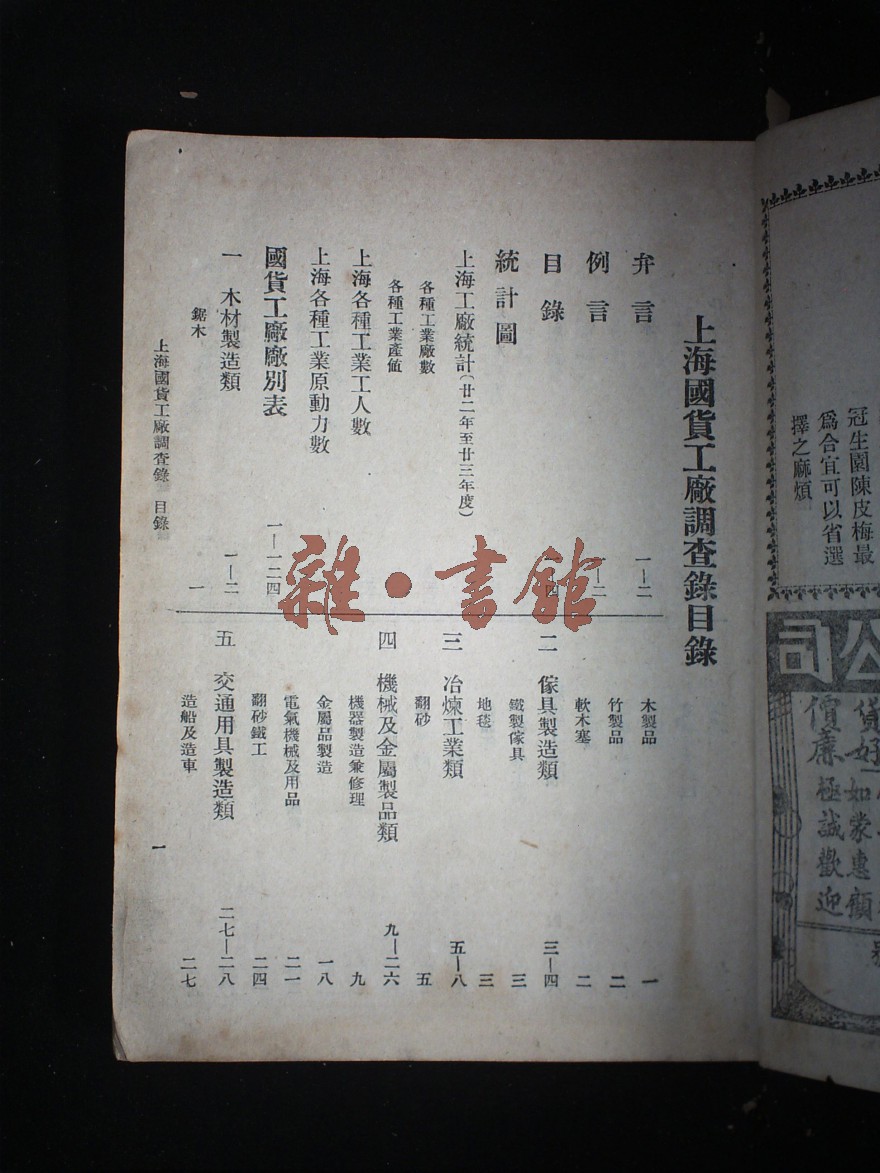 上海國貨工廠調查錄目錄
弁言 一—二
例言 一—二
目錄 四
統計圖
上海工廠統計(廿二年至廿三年度)
各種工業廠數
各種工業產値
上海各種工業工人數
上海各種工業原動力數
國貨工廠廠別表 一—一二四
一 木材製造類 一—二
鋸木 一
木製品 一
竹製品 二
軟木塞 二
二 傢具製造類 三—四
鐵製傢具 三
地毯 三
三 冶煉工業類 五—八
翻砂 五
四 機械及金屬製品類 九—二六
機器製造兼修理 九
金屬品製造 一八
電氣機械及用品 二一
翻砂鐵工 二四
五 交通用具製造類 二七—二八
造船及造車 二七
上海國貨工廠調查錄 目錄
一
雜·書館
冠生園陳皮梅最
爲合宜可以省選
擇之麻煩
公司
貨好如蒙惠顧
價廉極誠歡迎